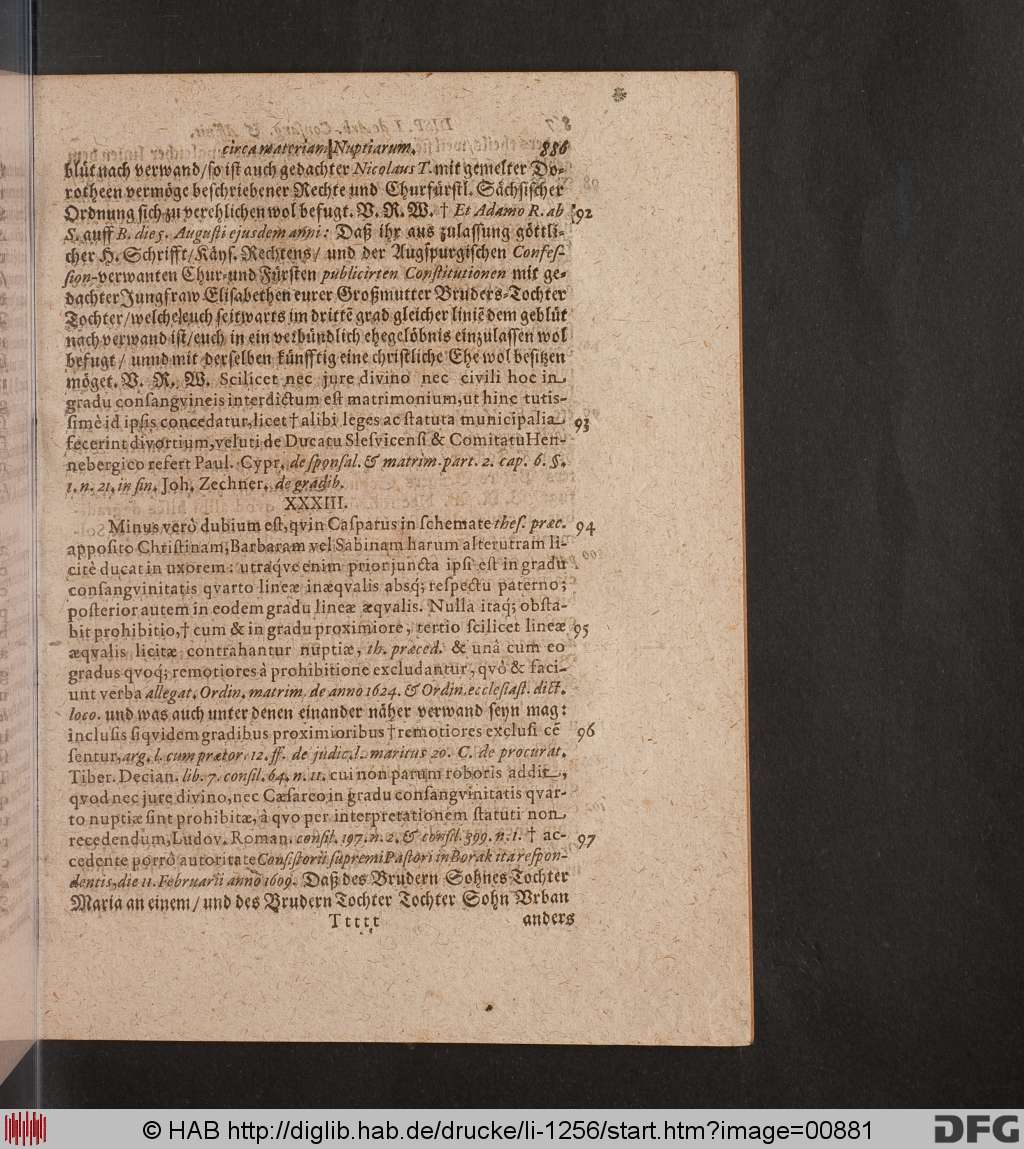 circa materiam Nuptiarum. 886
blüt nach verwand/so ist auch gedachter Nicolaus T. mit gemelter Do-
rotheen vermöge beschriebener Rechte und Churfürstl. Sächsischer
Ordnung sich zu verehlichen wol befugt. V. R. W. † Et Adamo R. ab 92
S. auff B. die 5. Augusti ejusdem anni: Daß ihr aus zulassung göttli-
cher H. Schrifft/Käys. Rechtens/ und der Augspurgischen Confes-
sion-verwanten Chur-und Fürsten publicirten Constitutionen mit ge-
dachter Jungfraw Elisabethen eurer Großmutter Bruders-Tochter
Tochter/welche euch seitwarts im drittē grad gleicher liniē dem geblüt
nach verwand ist/euch in ein verbündlich ehegelöbnis einzulassen wol
befugt/ unnd mit derselben künfftig eine christliche Ehe wol besitzen
möget. V. R. W. Scilicet nec jure divino nec civili hoc in
gradu consangvineis interdictum est matrimonium,ut hinc tutis-
simè id ipsis concedatur,licet † alibi leges ac statuta municipalia 93
fecerint divortium,veluti de Ducatu Slesvicensi & Comitatu Hen-
nebergico refert Paul. Cypr. de sponsal. & matrim. part. 2. cap. 6. §.
1. n. 21. in fin. Joh. Zechner. de gradib.
XXXIII.
Minus verò dubium est,qvin Casparus in schemate thes. præc. 94
apposito Christinam,Barbaram vel Sabinam harum alterutram li-
citè ducat in uxorem: utraqve enim prior juncta ipsi est in gradu
consangvinitatis qvarto lineæ inæqvalis absq; respectu paterno;
posterior autem in eodem gradu lineæ æqvalis. Nulla itaq; obsta-
bit prohibitio,† cum & in gradu proximiore, tertio scilicet lineæ 95
æqvalis licitæ contrahantur nuptiæ, th. præced. & unâ cum eo
gradus qvoq; remotiores à prohibitione excludantur, qvò & faci-
unt verba allegat. Ordin. matrim. de anno 1624. & Ordin. ecclesiast. dict.
loco. und was auch unter denen einander näher verwand seyn mag:
inclusis siqvidem gradibus proximioribus † remotiores exclusi cē 96
sentur,arg. l. cum prætor. 12. ff. de judic. l. maritus 20. C. de procurat.
Tiber. Decian. lib. 7. consil. 64. n. 11. cui non parum roboris addit,
qvod nec jure divino,nec Cæsareo in gradu consangvinitatis qvar-
to nuptiæ sint prohibitæ, à qvo per interpretationem statuti non
recedendum,Ludov. Roman. consil. 197. n. 2. & consil. 399. n. 1. † ac- 97
cedente porrò autoritate Consistorii supremi Pastori in Borak ita respon-
dentis,die 11. Februarii anno 1609. Daß des Brudern Sohnes Tochter
Maria an einem/ und des Brudern Tochter Tochter Sohn Vrban
Ttttt anders
© HAB http://diglib.hab.de/drucke/li-1256/start.htm?image=00881
DFG